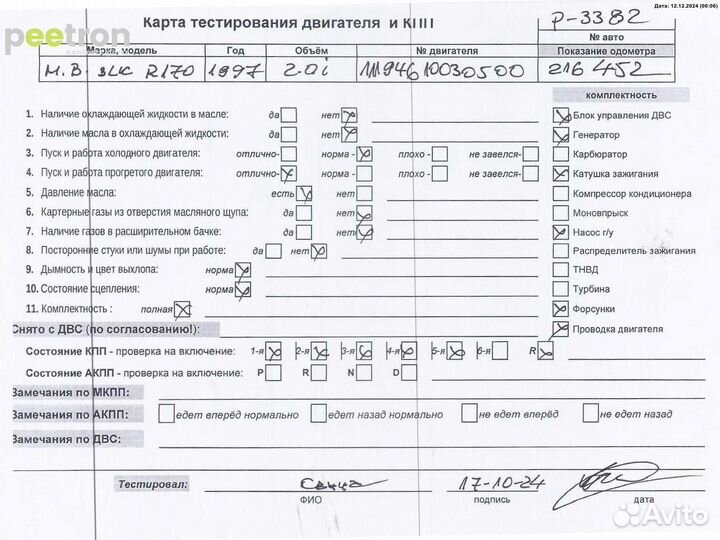 Дата: 12.12.2024 (00:06)
peetron
Карта тестирования двигателя и КПП
P-3382
№ авто
Марка, модель Год Объём № двигателя Показание одометра
M.B. SLK R170 1997 2.0i 11194610030500 216 452
комплектность
1. Наличие охлаждающей жидкости в масле: да нет Блок управления ДВС
2. Наличие масла в охлаждающей жидкости: да нет Генератор
3. Пуск и работа холодного двигателя: отлично- норма - плохо - не завелся- Карбюратор
4. Пуск и работа прогретого двигателя: отлично- норма - плохо - не завелся- Катушка зажигания
5. Давление масла: есть нет Компрессор кондиционера
6. Картерные газы из отверстия масляного щупа: да нет Моновпрыск
7. Наличие газов в расширительном бачке: да нет Насос г/у
8. Посторонние стуки или шумы при работе: да нет Распределитель зажигания
9. Дымность и цвет выхлопа: норма ТНВД
10. Состояние сцепления: норма Турбина
11. Комплектность : полная Форсунки
Снято с ДВС (по согласованию!): Проводка двигателя
Состояние КПП - проверка на включение: 1-я 2-я 3-я 4-я 5-я 6-я R
Состояние АКПП - проверка на включение: P R N D
Замечания по МКПП:
Замечания по АКПП: едет вперёд нормально едет назад нормально не едет вперёд не едет назад
Замечания по ДВС:
Тестировал: 17-10-24
ФИО подпись дата
Avito